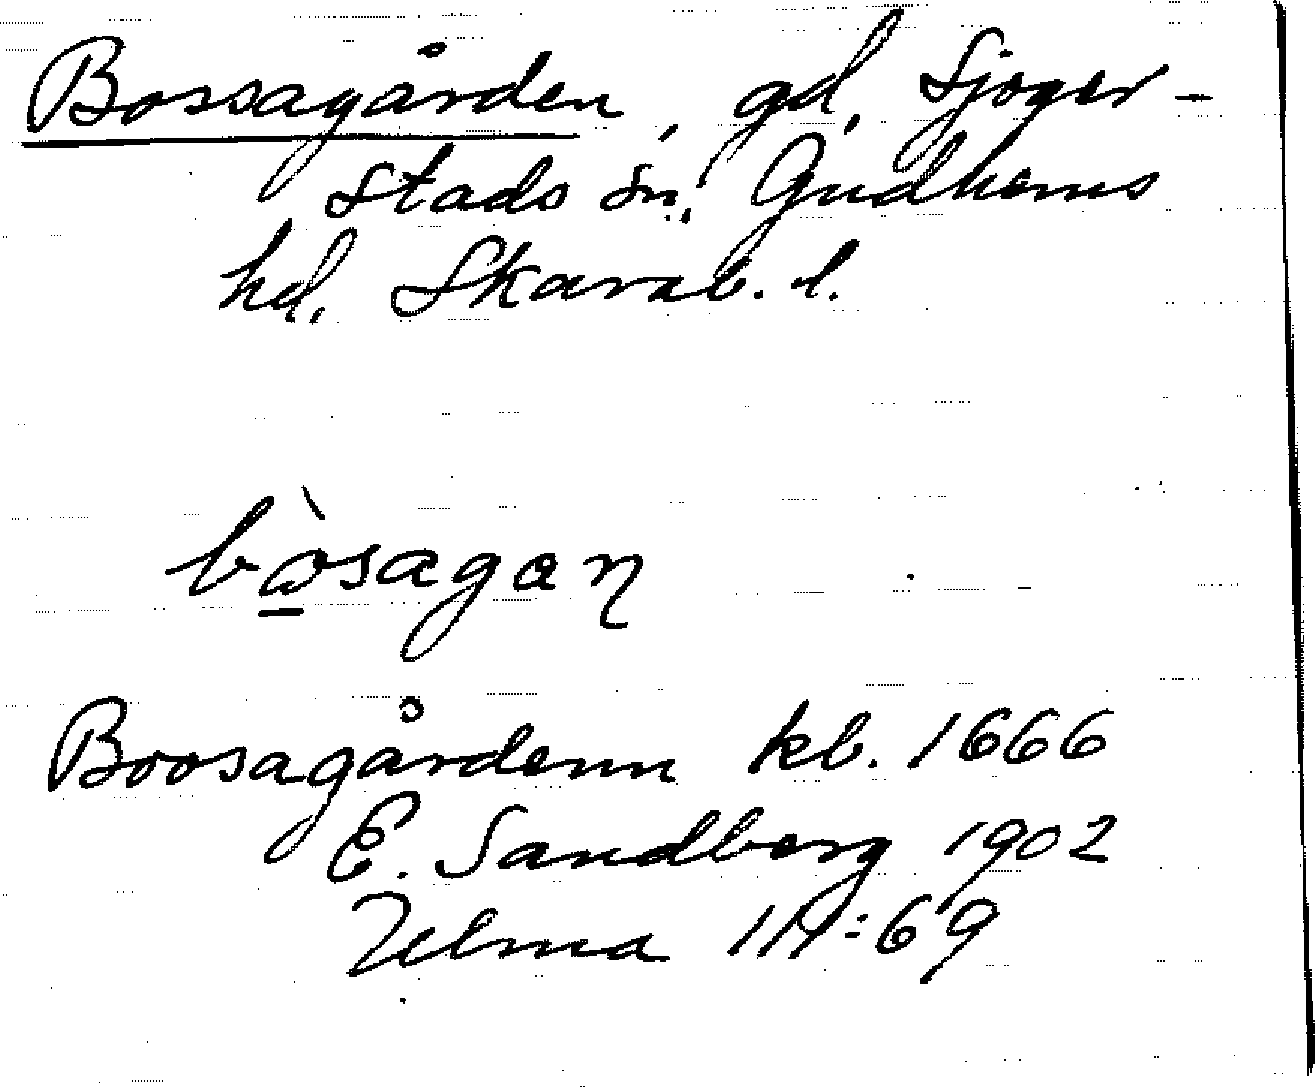 Bossagården, gd, Sjoger-
stads sn, Gudhems
hd, Skarab. l.
bòsagan
Boosagårdenn kb. 1666
E. Sandberg 1902
Ulma 111:69